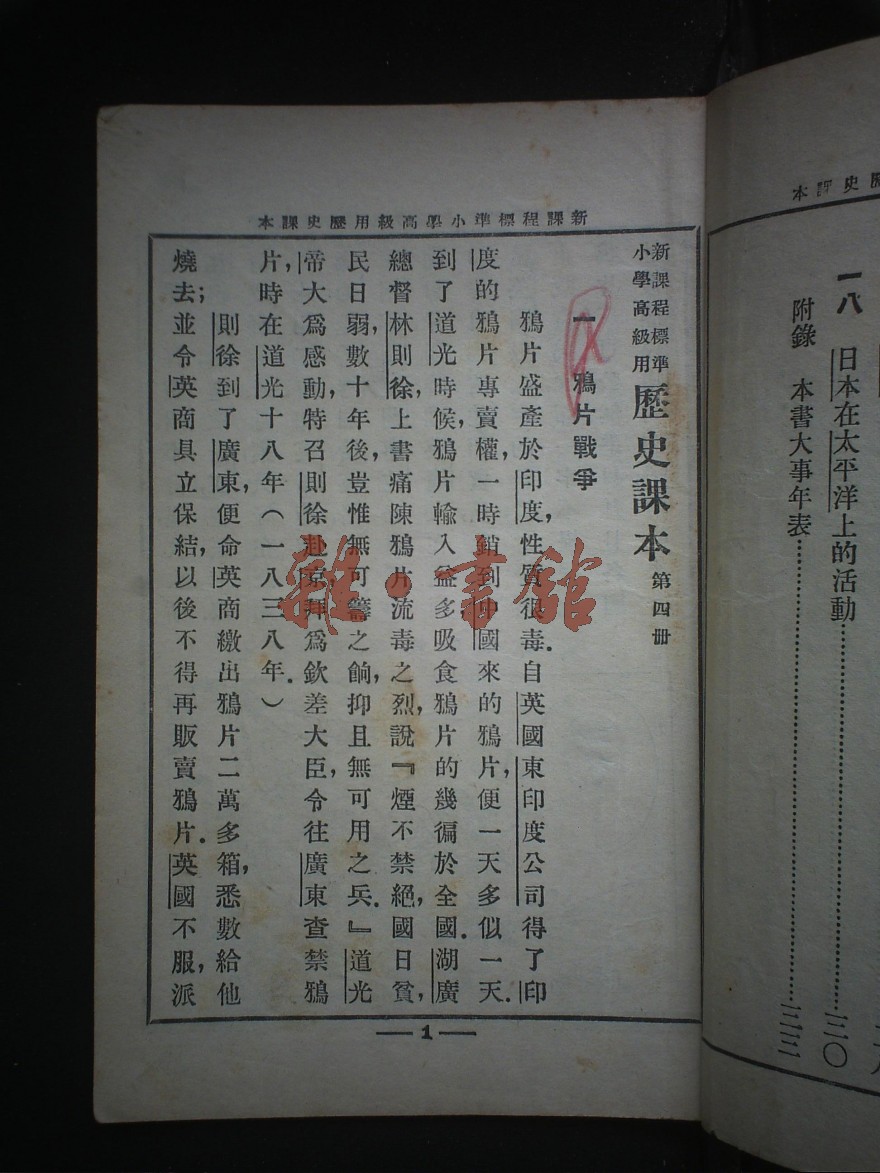 歷史課本
一八 日本在太平洋上的活動……………一三〇
附錄 本書大事年表……………
新課程標準小學高級用歷史課本
新課程標準小學高級用 歷史課本 第四冊
一 鴉片戰爭
鴉片盛產於印度，性質很毒．自英國東印度公司得了印
度的鴉片專賣權，一時銷到中國來的鴉片，便一天多似一天．
到了道光時候，鴉片輸入益多吸食鴉片的幾徧於全國．湖廣
總督林則徐，上書痛陳鴉片流毒之烈，說『煙不禁絕，國日貧，
民日弱，數十年後，豈惟無可籌之餉，抑且無可用之兵．』道光
帝大爲感動，特召則徐赴京，拜爲欽差大臣，令往廣東查禁鴉
片，時在道光十八年（一八三八年．）
則徐到了廣東，便命英商繳出鴉片二萬多箱，悉數給他
燒去；並令英商具立保結，以後不得再販賣鴉片．英國不服，派
1
雜·書館